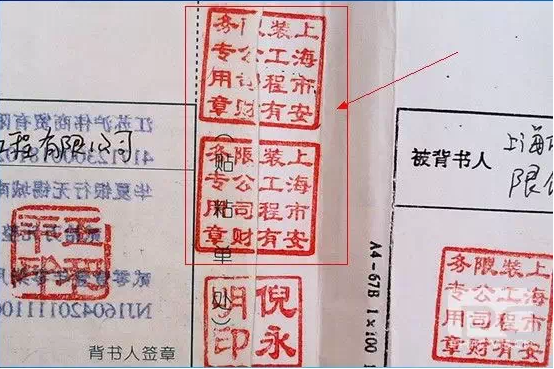 上海市安
装工程有
限公司财
务专用章
工程有限公司
江苏沪伟商贸有限
华夏银行无锡城南
(贴粘单处)
上海市安
装工程有
限公司财
务专用章
倪永
明印
背书人签章
A4-67B 1×100
被背书人
上海
限
上海市安
装工程有
限公司财
务专用章